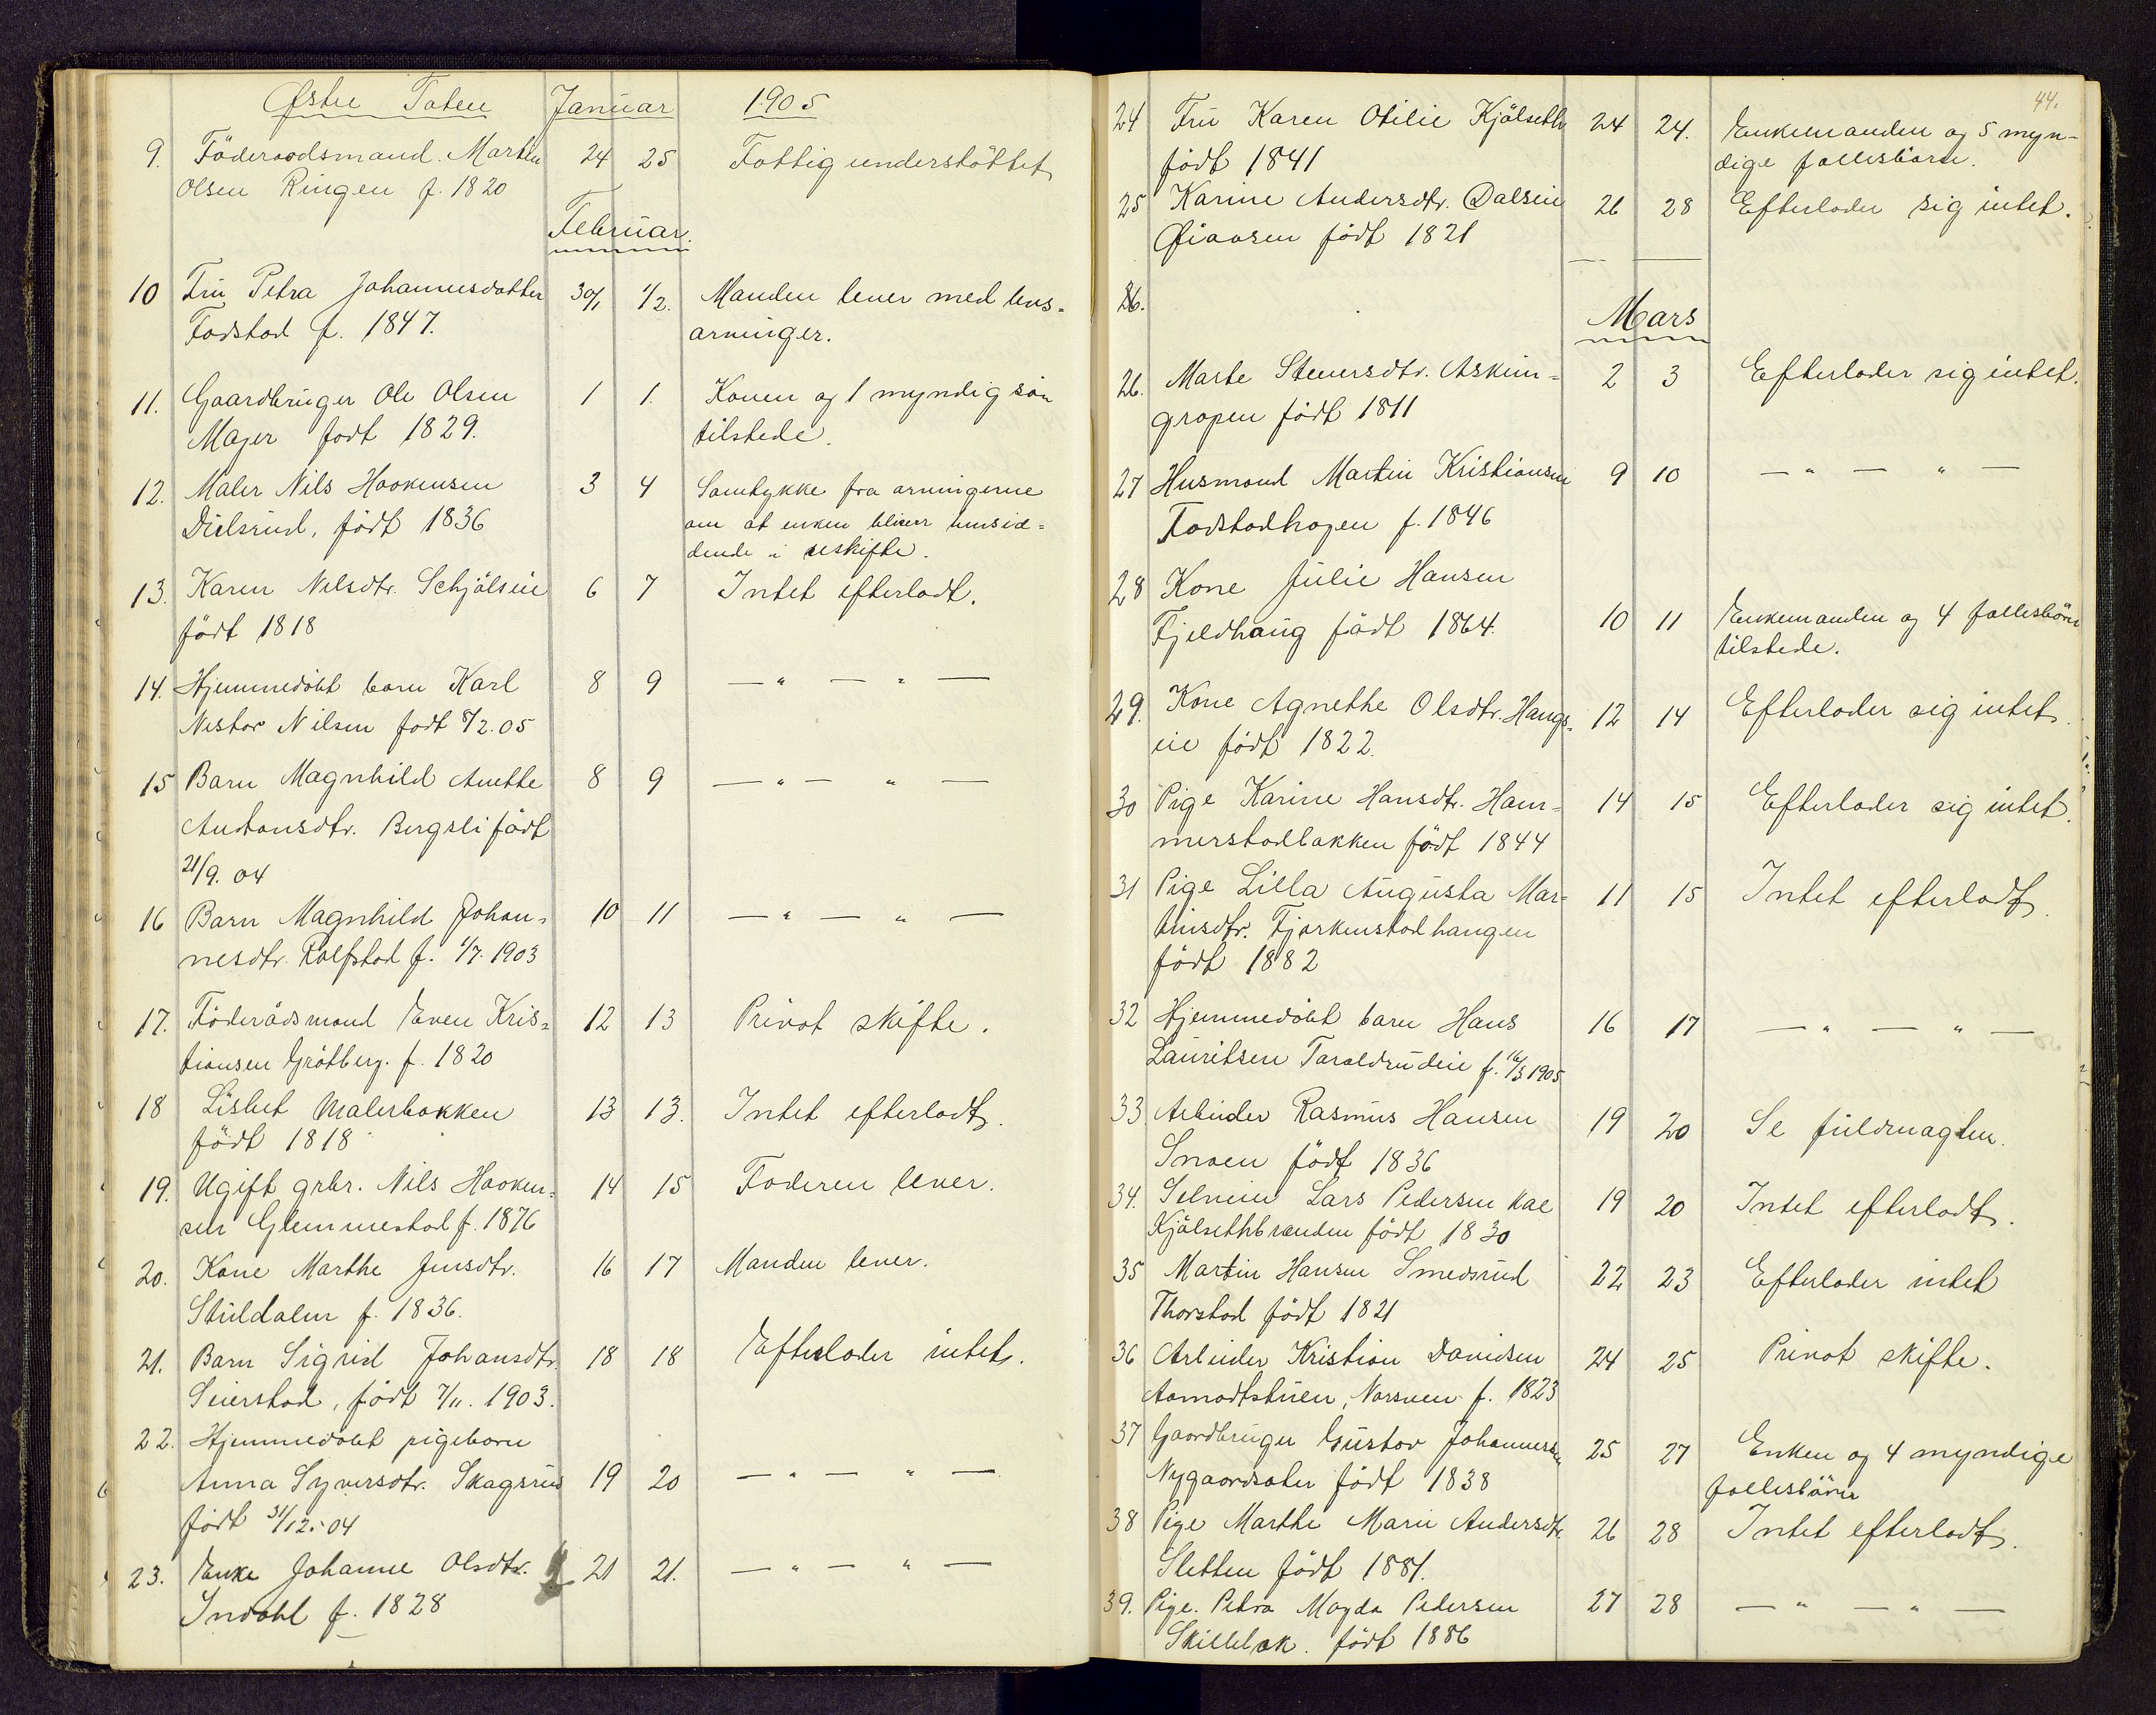 Østre Toten Januar 1905
9. Föderaadsmand Marten 24 25 Fattig understöttet
Olsen Ringen f. 1820
Februar.
10 Fru Petra Johannesdatter 30/1 1/2. Manden lever med livs-
Fodstad f. 1847. arvinger.
11. Gaardbruger Ole Olsen 1 1. Konen og 1 myndig sön
Majer födt 1829. tilstede.
12. Maler Nils Haakensen 3 4 Samtykke fra arvingerne
Dielsrud, födt 1836 om at enken bliver hensid-
dende i uskifte.
13. Karen Nilsdtr. Schjölseie 6 7 Intet efterladt.
födt 1818
14. Hjemmedöbt barn Karl 8 9 — " — " —
Nestor Nilsen født 8/2.05
15 Barn Magnhild Anette 8 9 — " — " —
Antonsdtr. Bergsli födt
21/9.04
16 Barn Magnhild Johan- 10 11 — " — " —
nesdtr. Rolfstad f. 1/7.1903
17. Föderådsmand Even Kris- 12 13 Privat skifte.
tiansen Grötberg. f. 1820
18 Lisbet Malerbakken 13 13. Intet efterladt.
födt 1818
19. Ugift grbr. Nils Haaken- 14 15 Faderen lever.
sen Glemmestad f. 1876
20. Kone Marthe Jensdtr. 16 17 Manden lever.
f. 1836.
21. Barn Sigrid Johansdtr. 18 18 Efterlader intet.
Seierstad, födt 7/11. 1903.
22. Hjemmedöbt pigebarn
Anna Syversdtr. Skagsrud 19 20 — " — " —
födt 31/12.-04
23. Enke Johanne Olsdtr. 21 21. — " — " —
Indahl f. 1828
44.
24 Fru Karen Otilie Kjölseth 24 24. Enkemanden og 5 myn-
födt 1841 dige fællesbörn.
25 Karine Andersdtr. Dalseie 26 28 Efterlader sig intet.
födt 1821
26.
Mars
26. Marte Steuersdtr. Askim- 2 3 Efterlader sig intet.
gropen födt 1811
27 Husmand Martin Kristiansen 9 10 — " — " —
Fodstadhagen f. 1846
28 Kone Julie Hansen
Fjeldhaug födt 1864. 10 11 Enkemanden og 4 fællesbörn
tilstede.
29. Kone Agnethe Olsdtr. Haugs- 12 14 Efterlader sig intet.
eie födt 1822.
30 Pige Karine Hansdtr. Ham- 14 15 Efterlader sig intet.
merstadbakken födt 1844
31 Pige Lilla Augusta Mar- 11 15 Intet efterladt.
tinsdtr. Fjorkenstadhaugen
födt 1882
32 Hjemmedöbt barn Hans 16 17 — " — " —
Lauritsen Taraldrudeie f. 16/3 1905
33. Arbeider Rasmus Hansen 19 20 Se fuldmagten.
Snoen födt 1836
34. Selveier Lars Pedersen 19 20 Intet efterladt.
Kjölsethbraenden födt 1830
35 Martin Hansen Smedsrud 22 23 Efterlader intet
Thorstad födt 1821
36 Arbeider Kristian Davidsen 24 25 Privat skifte.
Aamodtstuen, Narsveen f. 1823
37 Gaardbruger Gustav Johannesen 25 27 Enken og 4 myndige
Nygaardsæter födt 1838 fællesbörn
38 Pige Marthe Marie Andersdtr. 26 28 Intet efterladt.
Sletten födt 1881.
39. Pige. Petra Magda Pedersen 27 28 — " — " —
Skillebæk. födt 1886